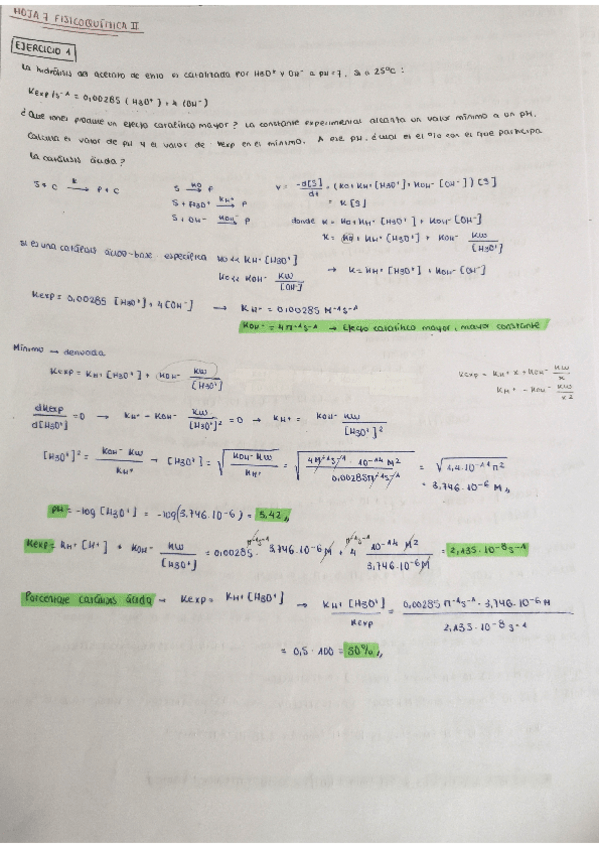 HOJA 7 FISICOQUÍMICA II
EJERCICIO 1
La hidrólisis del acetato de etilo es catalizada por H3O+ y OH- a pH=7, si a 25ºC:
Kexp/s-1 = 0,00285 (H3O+) + 4 (OH-)
¿Que iones produce un efecto catalítico mayor? La constante experimental alcanza un valor mínimo a un pH.
Calcula el valor de pH y el valor de Kexp en el mínimo. A ese pH, ¿cuál es el % con el que participa
la catálisis ácida?
S + C →(k) P + C S →(k0) P v = -d[S]/dt = (k0 + kH+ [H3O+] + kOH- [OH-]) [S]
S + H3O+ →(kH+) P = K [S]
S + OH- →(kOH-) P donde K = k0 + kH+ [H3O+] + kOH- [OH-]
K = k0 + kH+ [H3O+] + kOH- Kw/[H3O+]
si es una catálisis ácido-base específica k0 << kH+ [H3O+]
k0 << kOH- Kw/[OH-] → K = kH+ [H3O+] + kOH- [OH-]
Kexp = 0,00285 [H3O+] + 4[OH-] → KH+ = 0,00285 M-1s-1
KOH- = 4 M-1s-1 → Efecto catalítico mayor, mayor constante
Mínimo → derivada
Kexp = KH+ [H3O+] + KOH- Kw/[H3O+]
Kexp = KH+ x + KOH- Kw/x
KH+ - KOH- Kw/x2
dKexp/d[H3O+] = 0 → KH+ - KOH- Kw/[H3O+]2 = 0 → KH+ = KOH- Kw/[H3O+]2
[H3O+]2 = KOH- Kw/KH+ → [H3O+] = √(KOH- Kw/KH+) = √(4M-1s-1 · 10-14 M2/0,00285M-1s-1) = √(1,4·10-11 M2)
= 3,746·10-6 M
pH = -log [H3O+] = -log(3,746·10-6) = 5,42
Kexp = KH+ [H+] + KOH- Kw/[H3O+] = 0,00285 M-1s-1 · 3,746·10-6 M + 4 M-1s-1 10-14 M2/3,746·10-6 M = 2,135·10-8 s-1
Porcentaje catálisis ácida → Kexp = KH+ [H3O+] → KH+ [H3O+]/Kexp = 0,00285 M-1s-1 · 3,746·10-6 M/2,135·10-8 s-1
= 0,5 · 100 = 50%